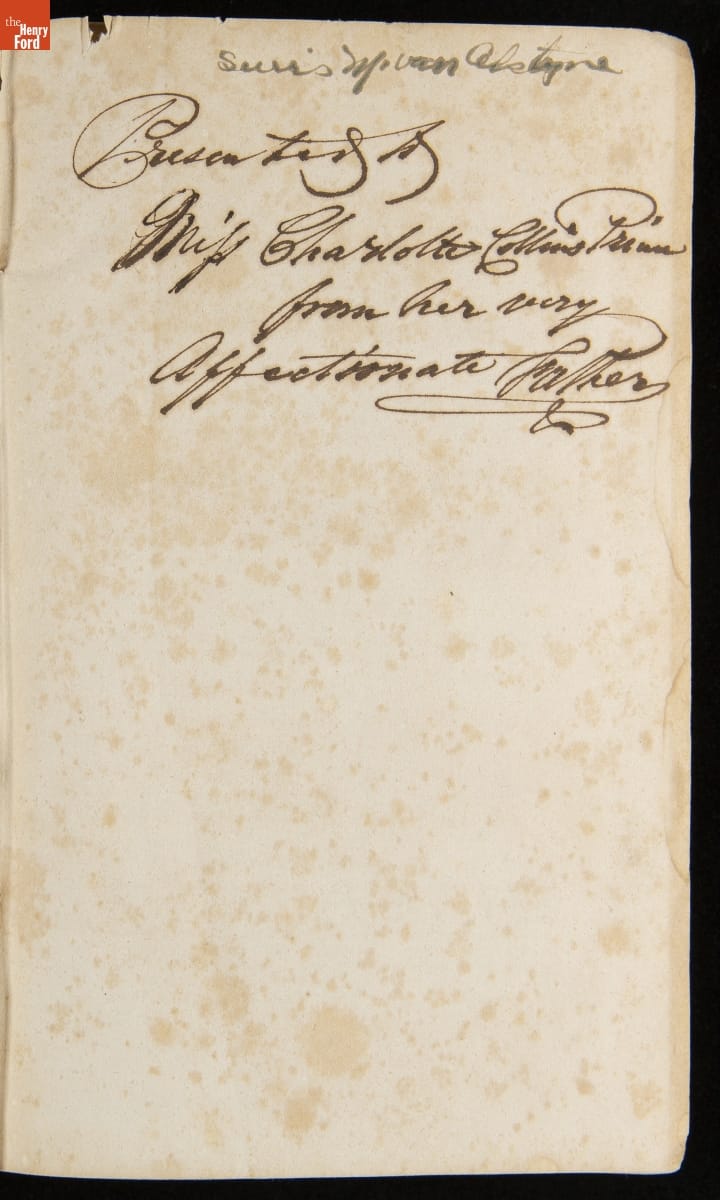 the
Henry
Ford
van Alstyne
Presented by
Miss Charlotte Collins
from her very
Affectionate Father